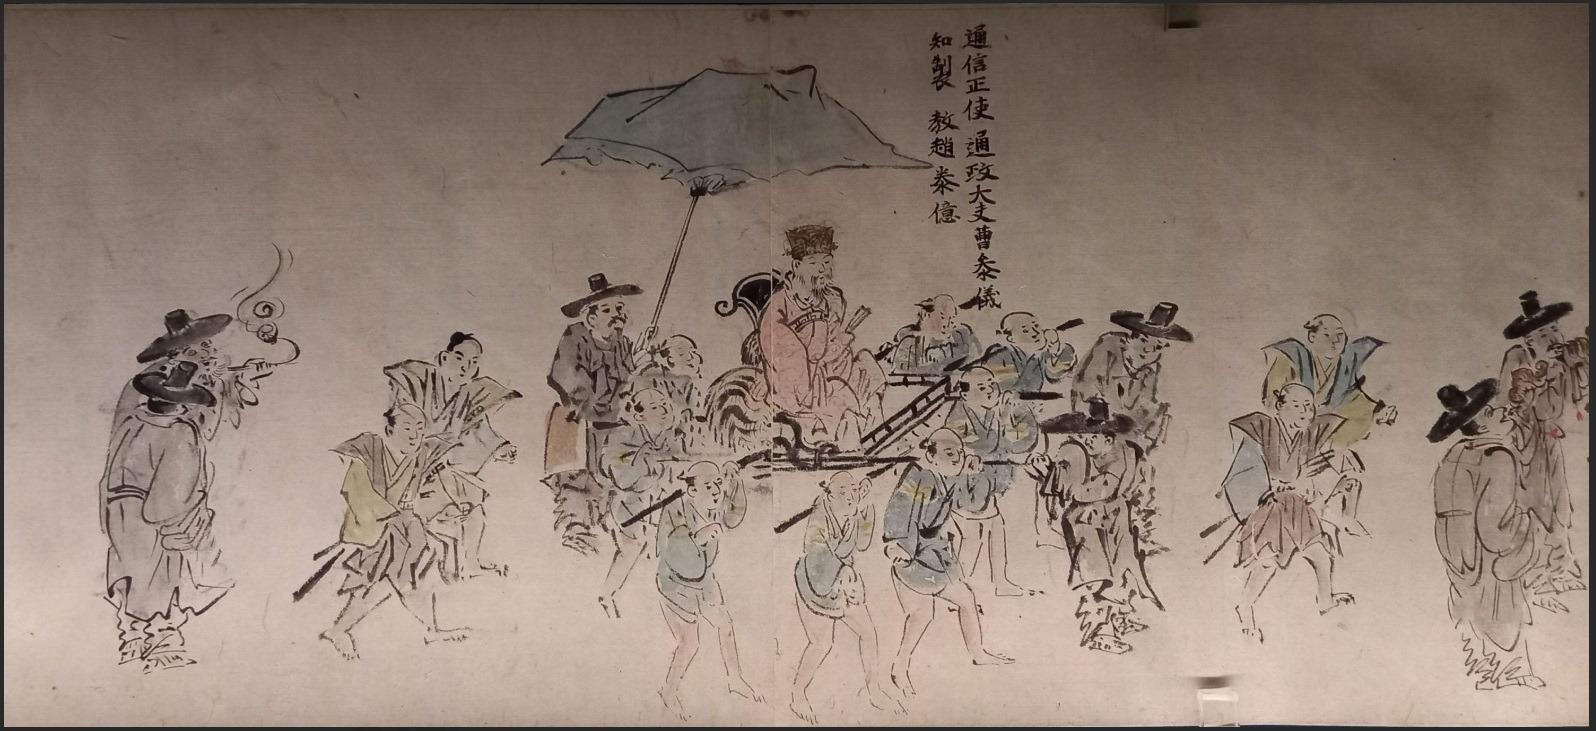 通信正使 通政大夫曹叅儀
知製 教趙泰億